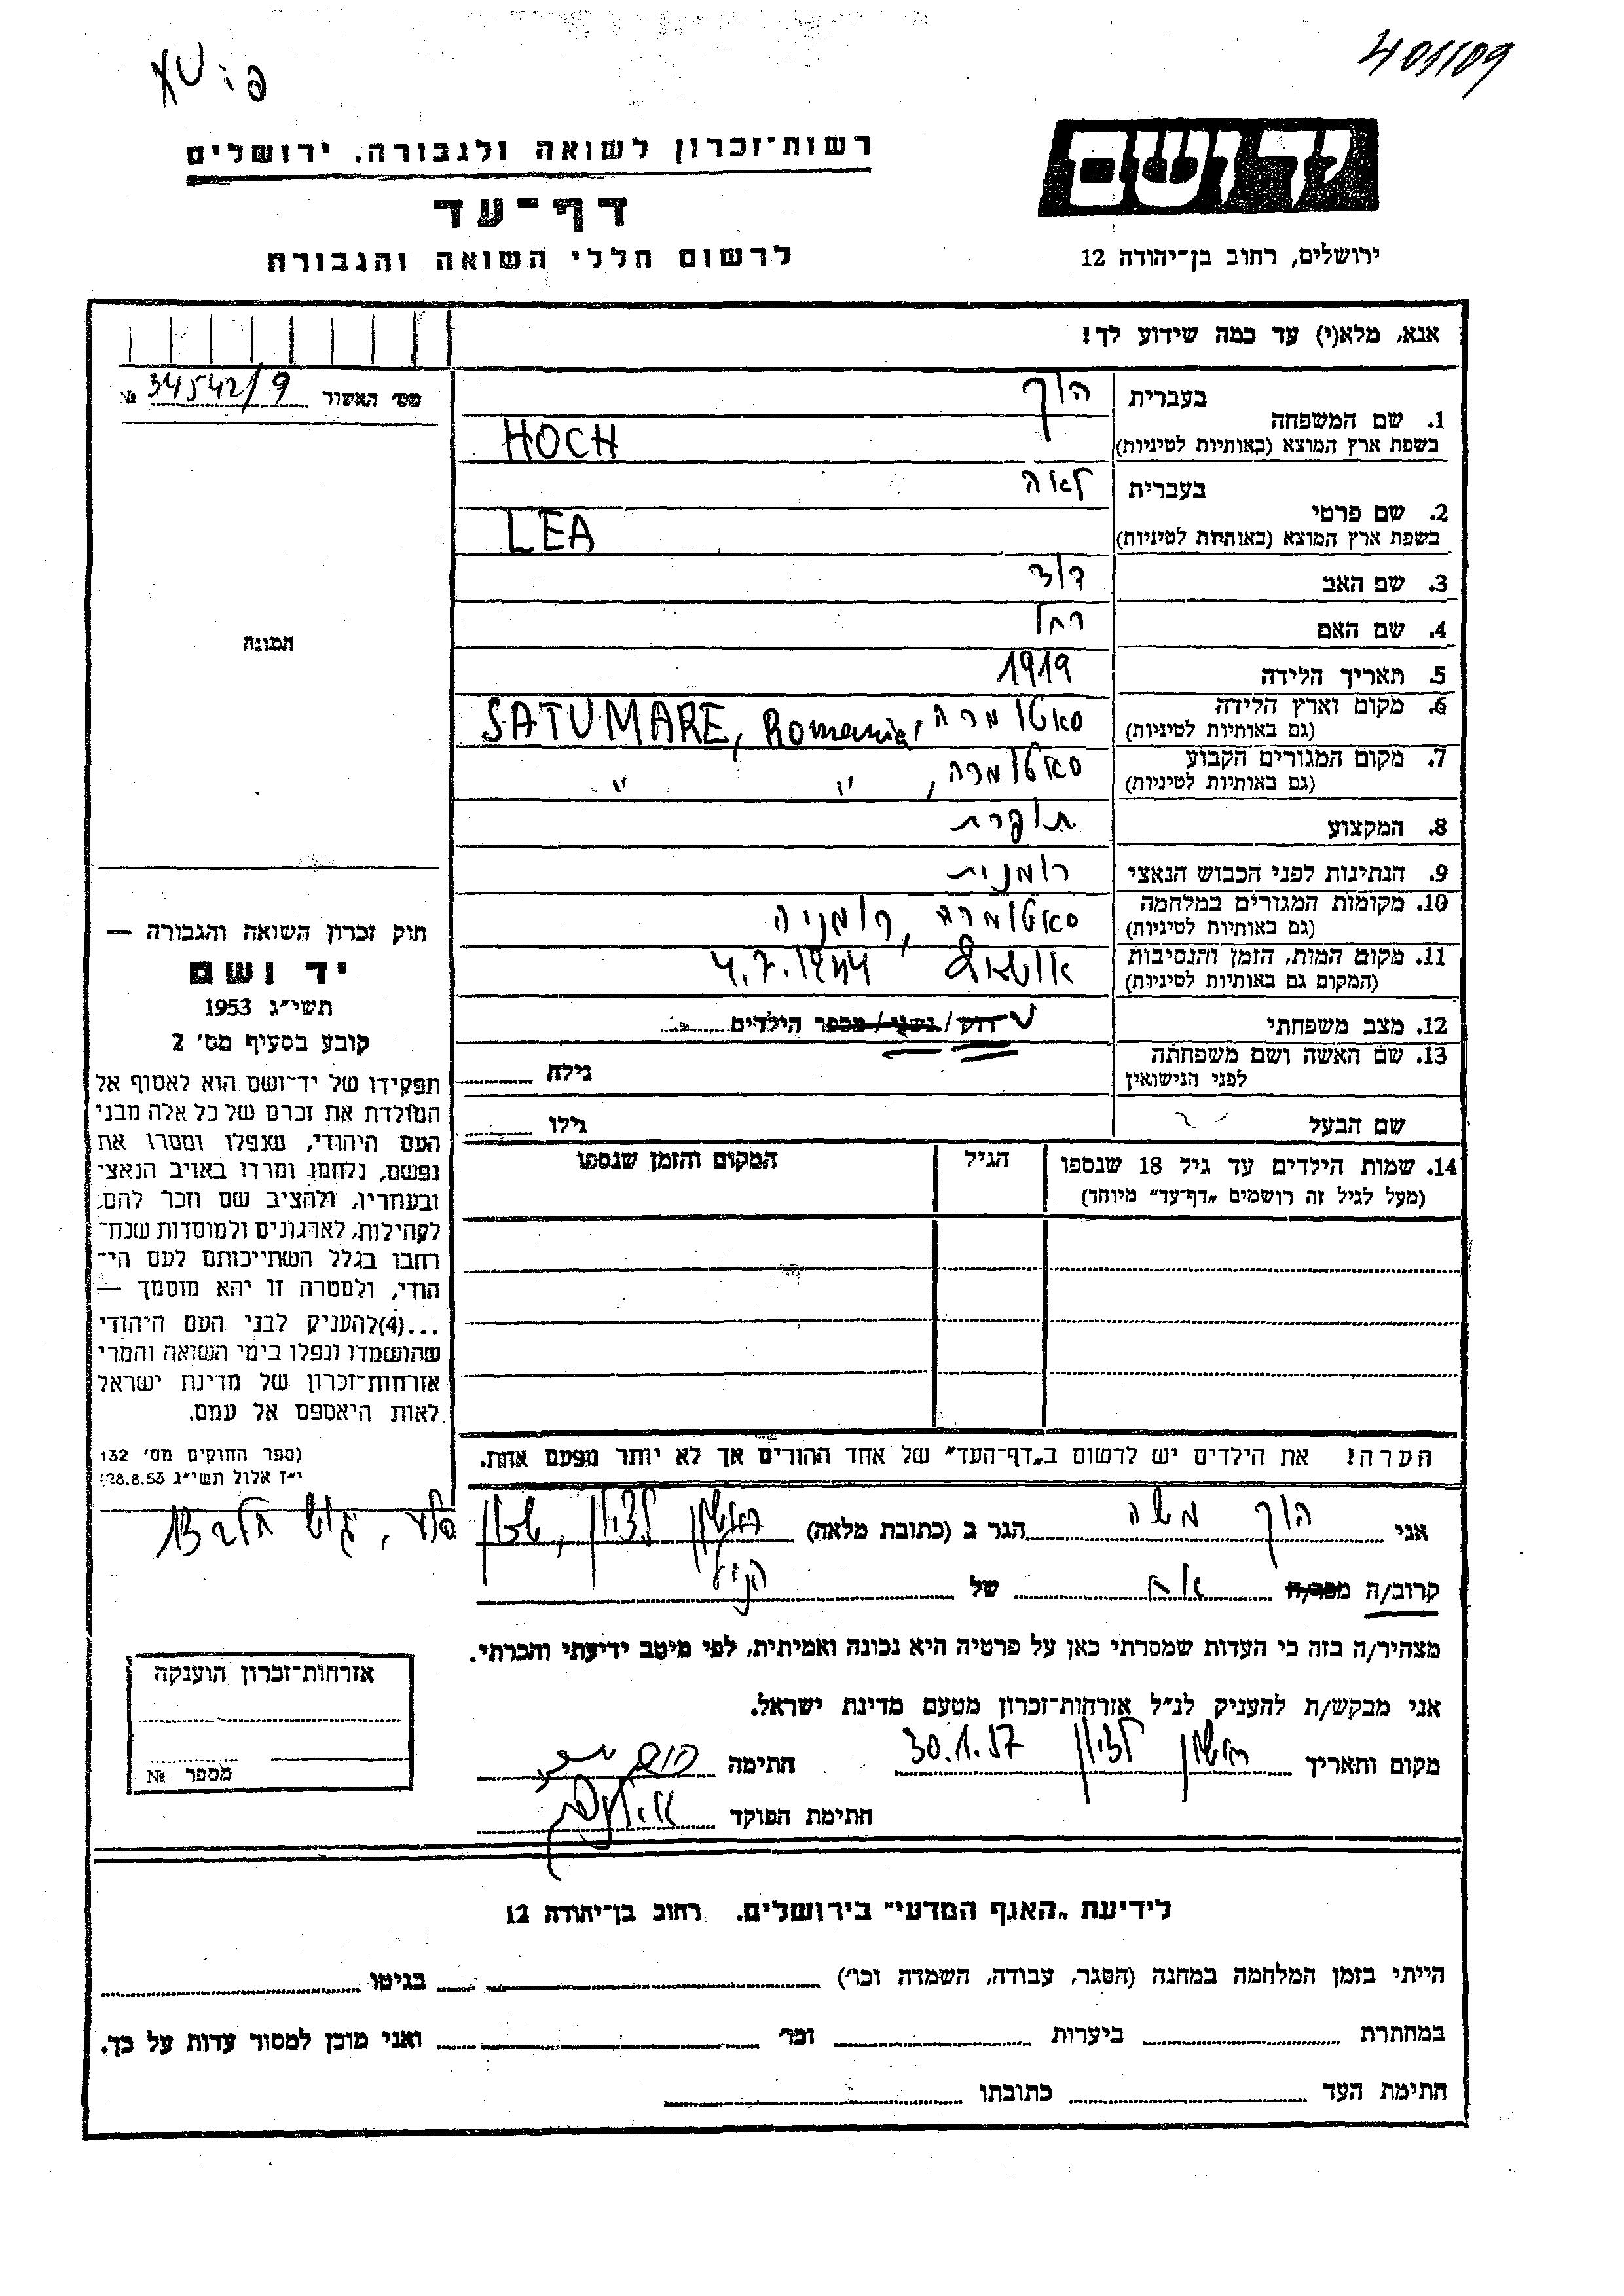 401109
רשות־זכרון לשואה ולגבורה. ירושלים
יד ושם
דף־עד
לרשום חללי השואה והגבורה
ירושלים, רחוב בן־יהודה 12
אנא, מלא(י) עד כמה שידוע לך!
מס׳ האשור 34542/9 №
1. שם המשפחה
בעברית הוך
בשפת ארץ המוצא (באותיות לטיניות) HOCH
2. שם פרטי
בעברית לאה
בשפת ארץ המוצא (באותיות לטיניות) LEA
3. שם האב דוד
4. שם האם רחל
5. תאריך הלידה 1919
6. מקום וארץ הלידה (גם באותיות לטיניות) סאטומרה, SATUMARE, Romania
7. מקום המגורים הקבוע (גם באותיות לטיניות) סאטומרה, " "
8. המקצוע תופרת
9. הנתינות לפני הכבוש הנאצי רומנית
10. מקומות המגורים במלחמה (גם באותיות לטיניות) סאטומרה, רומניה
11. מקום המות, הזמן והנסיבות (המקום גם באותיות לטיניות) 4.7.1944
12. מצב משפחתי רוק / נשוי / מספר הילדים
13. שם האשה ושם משפחתה לפני הנישואין
גילה
שם הבעל
גילו
14. שמות הילדים עד גיל 18 שנספו
(מעל לגיל זה רושמים „דף־עד” מיוחד)
הגיל
המקום והזמן שנספו
תמונה
חוק זכרון השואה והגבורה —
יד ושם
תשי״ג 1953
קובע בסעיף מס׳ 2
תפקידו של יד־ושם הוא לאסוף אל
המולדת את זכרם של כל אלה מבני
העם היהודי, שנפלו ומסרו את
נפשם, נלחמו ומרדו באויב הנאצי
ובעוזריו, ולהציב שם וזכר להם,
לקהילות, לארגונים ולמוסדות שנח־
רבו בגלל השתייכותם לעם הי־
הודי, ולמטרה זו יהא מוסמך —
...(4)להעניק לבני העם היהודי
שהושמדו ונפלו בימי השואה והמרי
אזרחות־זכרון של מדינת ישראל
לאות היאספם אל עמם.
(ספר החוקים מס׳ 132
י״ז אלול תשי״ג 28.8.53)
הערה! את הילדים יש לרשום ב„דף־העד” של אחד ההורים אך לא יותר מפעם אחת.
אני הוך משה הגר ב (כתובת מלאה) ראשון לציון, שכון
קרוב/ה מכר/ה אח של הנ״ל
מצהיר/ה בזה כי העדות שמסרתי כאן על פרטיה היא נכונה ואמיתית, לפי מיטב ידיעתי והכרתי.
אני מבקש/ת להעניק לנ״ל אזרחות־זכרון מטעם מדינת ישראל.
מקום ותאריך ראשון לציון 30.1.57 חתימה
חתימת הפוקד
אזרחות־זכרון הוענקה
מספר №
לידיעת „האגף המדעי” בירושלים. רחוב בן־יהודה 12
הייתי בזמן המלחמה במחנה (הסגר, עבודה, השמדה וכו׳) בגיטו
במחתרת ביערות וכו׳ ואני מוכן למסור עדות על כך.
חתימת העד כתובתו